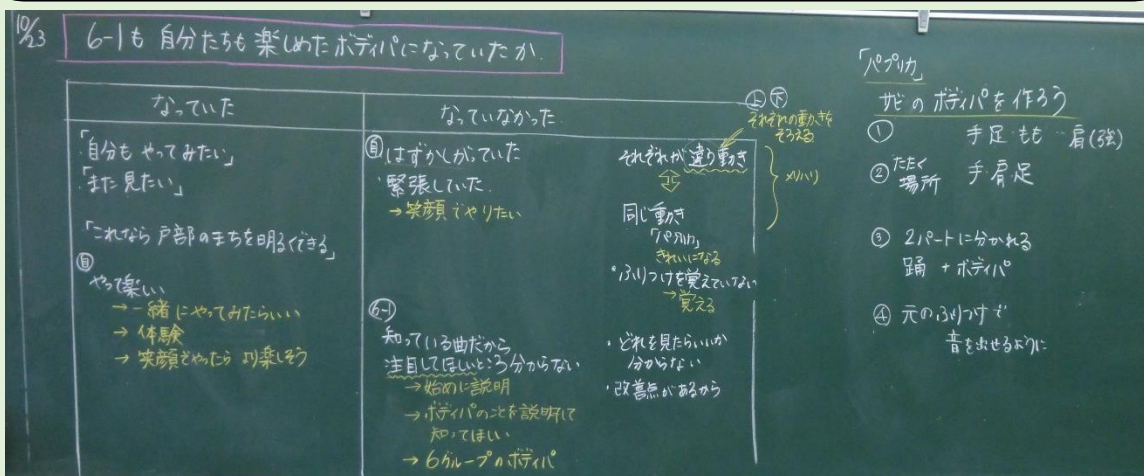 10/23
6-1も自分たちも楽しめたボディパになっていたか.
なっていた
「自分もやってみたい」
「また見たい」
「これなら戸部のまちを明るくできる」
自
やって楽しい
→一緒にやってみたらいい
→体験
→笑顔でやったらより楽しそう
なっていなかった
自 はずかしがっていた
・緊張していた.
→笑顔でやりたい
6-1
知っている曲だから
注目してほしいところ分からない
→始めに説明
→ボディパのことを説明して
知ってほしい
→6グループのボディパ
上 下
それぞれの動きを
そろえる
それぞれが違う動き
メリハリ
同じ動き
「パプリカ」
きれいになる
・ふりつけを覚えていない
→覚える
・どれを見たらいいか
分からない
・改善点があるから
「パプリカ」
サビのボディパを作ろう
① 手足・もも・肩(強)
② たたく場所 手・肩・足
③ 2パートに分かれる
踊+ボディパ
④ 元のふりつけで
音を出せるように